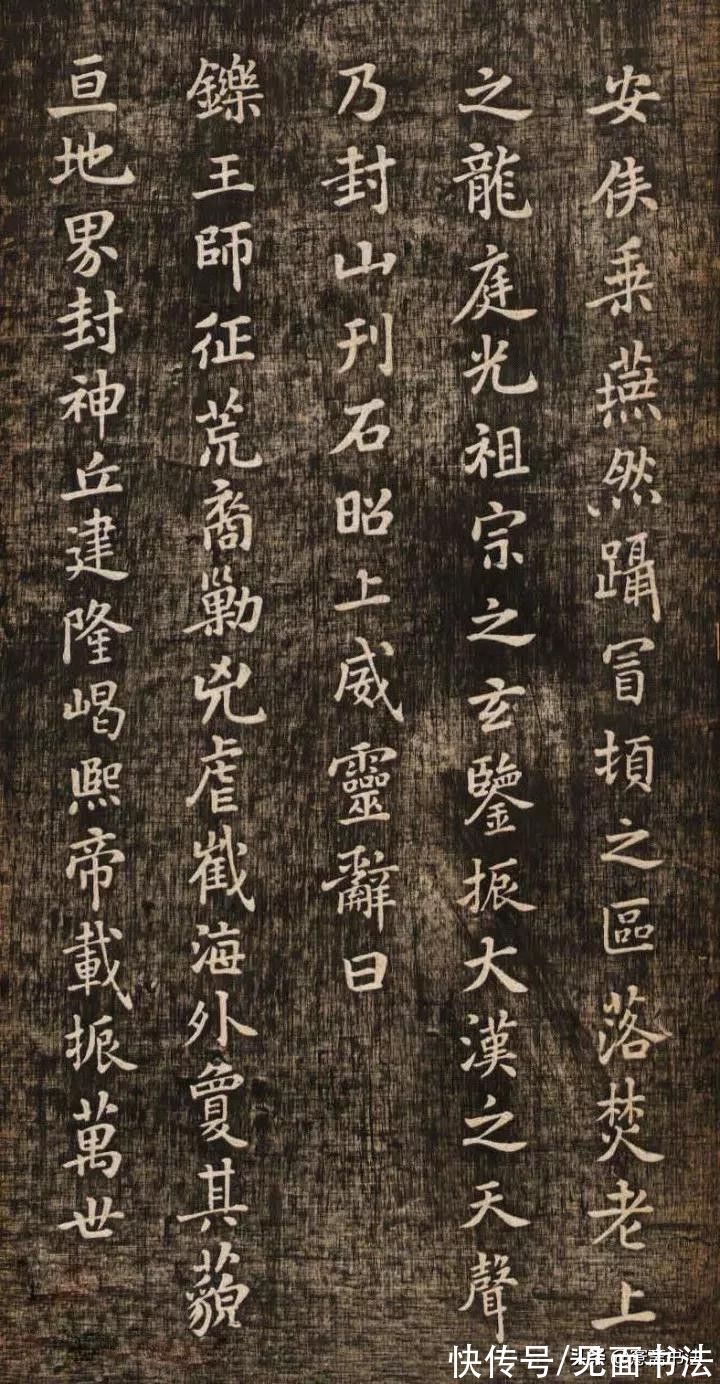 安侯乗燕然躡冒頓之區落焚老上
之龍庭光祖宗之玄鑒振大漢之天聲
乃封山刊石昭上威靈辭曰
鑠王師征荒裔勦兇虐截海外敻其藐
亘地界封神丘建隆嵑熙帝載振萬世
快传号/见面书法